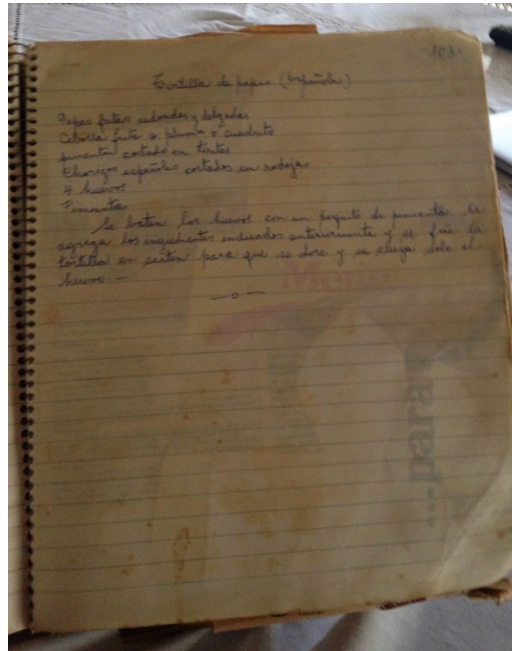 -103-
Tortilla de papas (Española)
Papas fritas redondas y delgadas
Cebolla frita a pluma o cuadrito
pimentón cortado en tiritas
Chorizos españoles cortados en rodajas
4 huevos
Pimienta
Se baten los huevos con un poquito de pimienta. Se
agrega los ingredientes indicados anteriormente y se fríe la
tortilla en sartén para que se dore y se cueza solo el
huevo. —
—o—
Menú
...para